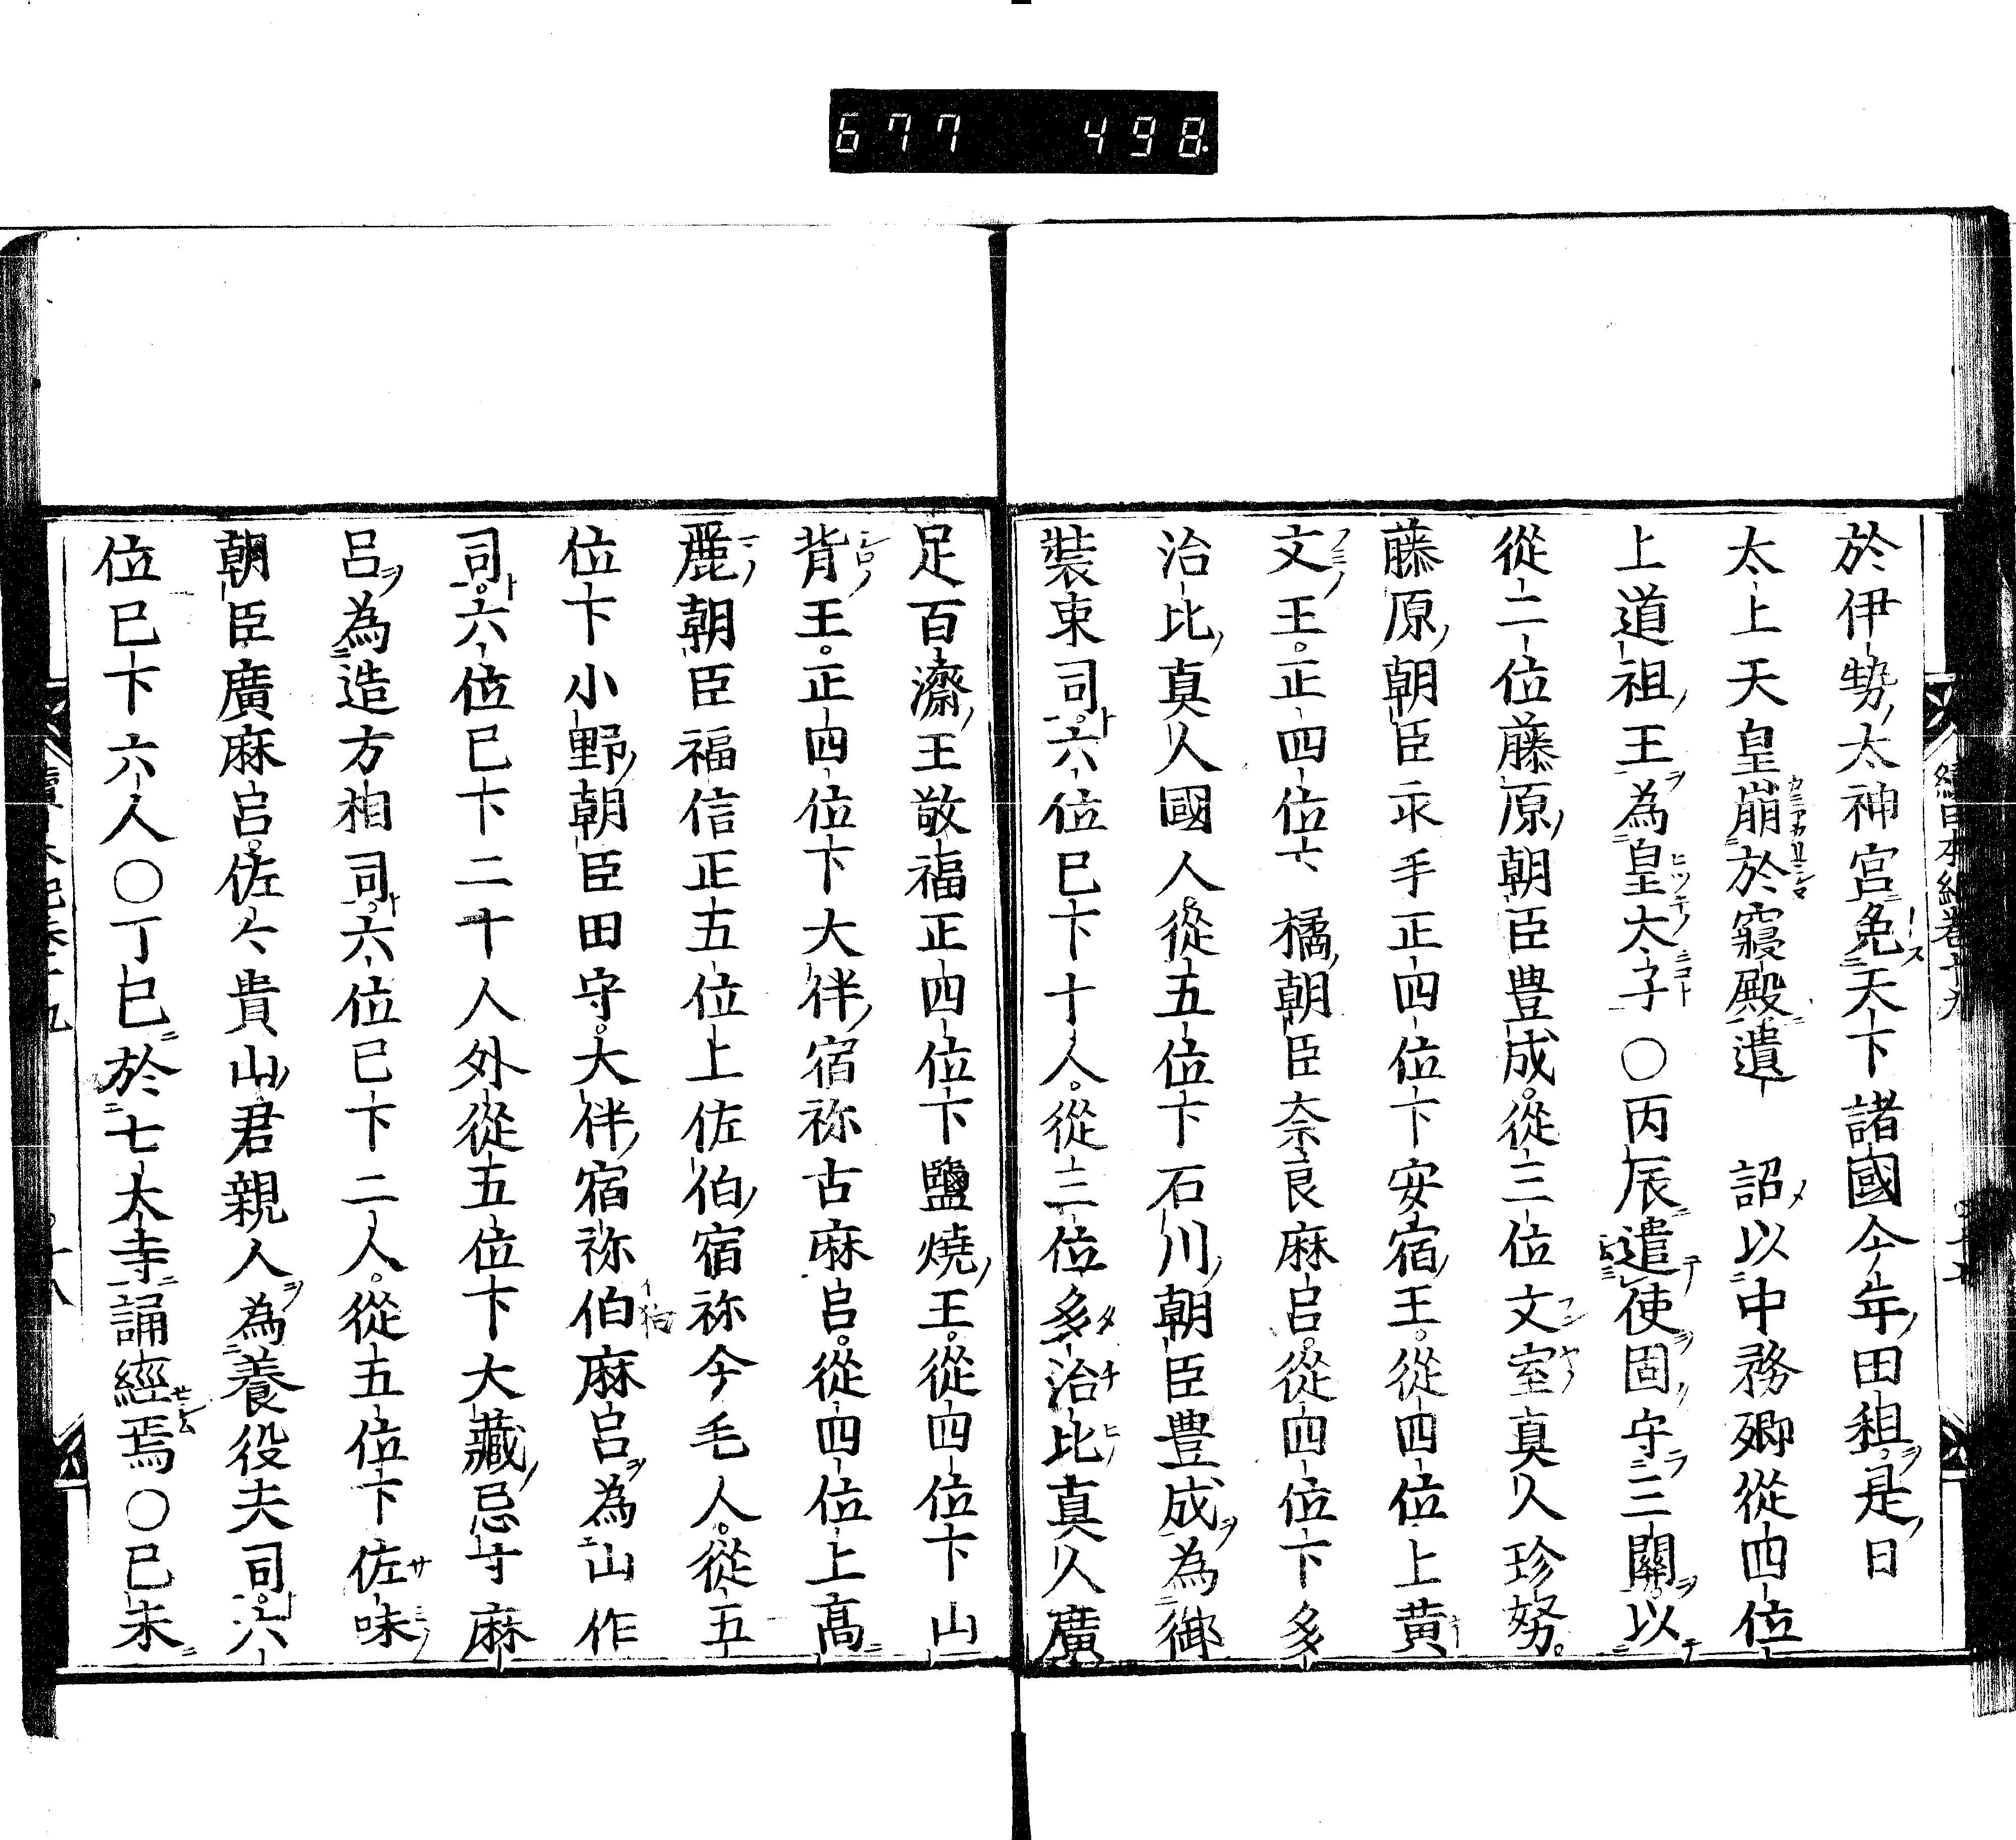 677 498.
續日本紀卷十九
於伊勢太神宮免天下諸國今年田租是日
太上天皇崩於寢殿遺 詔以中務卿從四位
上道祖王為皇太子〇丙辰遣使固守三關以
從二位藤原朝臣豊成從三位文室真人珍努
藤原朝臣永手正四位下安宿王從四位上黄
文王正四位下橘朝臣奈良麻呂從四位下多
治比真人國人從五位下石川朝臣豊成為御
裝束司六位已下十人從三位多治比真人廣
足百濟王敬福正四位下鹽燒王從四位下山
背王正四位下大伴宿祢古麻呂從四位上高
麗朝臣福信正五位上佐伯宿祢今毛人從五
位下小野朝臣田守大伴宿祢伯麻呂為山作
司六位已下二十人外從五位下大藏忌寸麻
呂為造方相司六位已下二人從五位下佐味
朝臣廣麻呂佐々貴山君親人為養役夫司六
位已下六人〇丁巳於七大寺誦經焉〇己未
十八